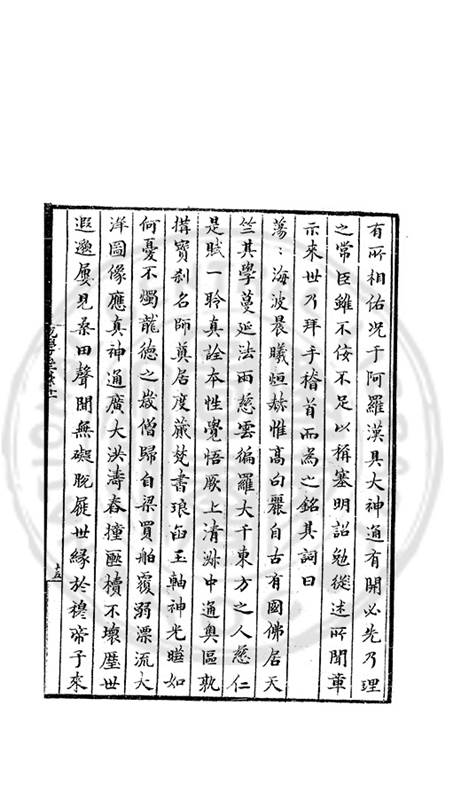 有所相佑況于阿羅漢具大神通有開必先乃理
之常臣雖不佞不足以稱塞明詔勉從述所聞章
示來世乃拜手稽首而為之銘其詞曰
蕩:海波晨曦烜赫惟高句麗自古有國佛居天
竺其學蔓延法雨慈雲徧羅大千東方之人慈仁
是賦一聆真詮本性覺悟厥上清淑中通奧區孰
搆寶刹名師奠居度藏梵書琅函玉軸神光曒如
何憂不燭龍德之歲僧歸自梁買舶覆溺漂流大
洋圖像應真神通廣大洪濤舂撞匭櫝不壞歷世
遐邈屢見桑田聲聞無礙脫屣世緣於穆帝子來
十五